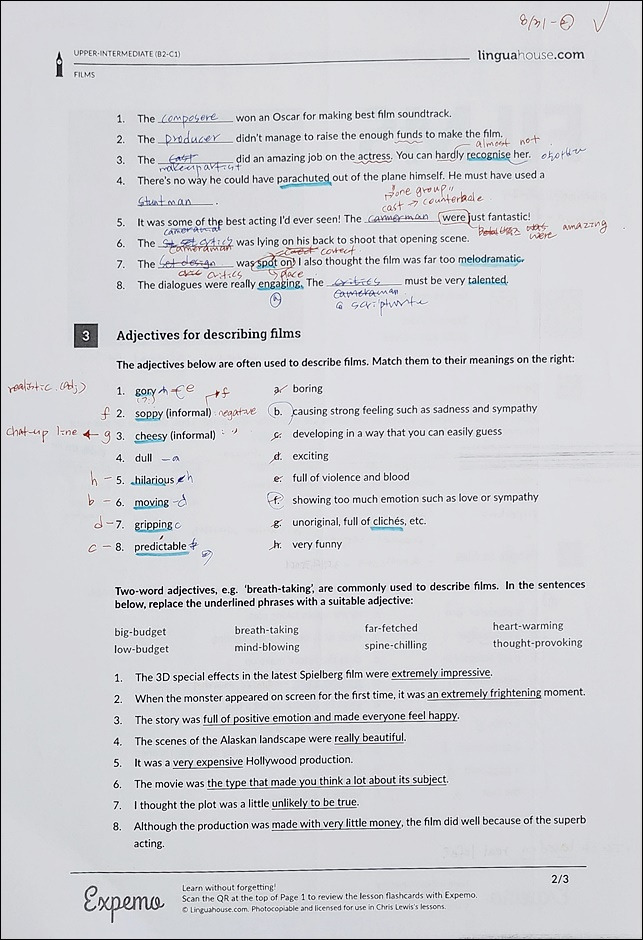 8/21-②
UPPER-INTERMEDIATE (B2-C1)
linguahouse.com
FILMS
1. The composere won an Oscar for making best film soundtrack.
2. The producer didn't manage to raise the enough funds to make the film.
almost not
3. The cast did an amazing job on the actress. You can hardly recognise her.
makeup artist
4. There's no way he could have parachuted out of the plane himself. He must have used a
"one group"
stuntman.
cast → counterable
5. It was some of the best acting I'd ever seen! The camerman were just fantastic!
were amazing
cameraman
6. The set critics was lying on his back to shoot that opening scene.
cameraman
correct
7. The set design was spot on! I also thought the film was far too melodramatic.
critics
place
8. The dialogues were really engaging. The critics must be very talented.
cameraman
scriptwrite
3 Adjectives for describing films
The adjectives below are often used to describe films. Match them to their meanings on the right:
realistic (adj)
1. gory e
a. boring
f 2. soppy (informal) negative
b. causing strong feeling such as sadness and sympathy
chat-up line ← g 3. cheesy (informal)
c. developing in a way that you can easily guess
4. dull - a
d. exciting
h - 5. hilarious h
e. full of violence and blood
b - 6. moving - d
f. showing too much emotion such as love or sympathy
d - 7. gripping c
g. unoriginal, full of clichés, etc.
c - 8. predictable
h. very funny
Two-word adjectives, e.g. 'breath-taking', are commonly used to describe films. In the sentences
below, replace the underlined phrases with a suitable adjective:
big-budget breath-taking far-fetched heart-warming
low-budget mind-blowing spine-chilling thought-provoking
1. The 3D special effects in the latest Spielberg film were extremely impressive.
2. When the monster appeared on screen for the first time, it was an extremely frightening moment.
3. The story was full of positive emotion and made everyone feel happy.
4. The scenes of the Alaskan landscape were really beautiful.
5. It was a very expensive Hollywood production.
6. The movie was the type that made you think a lot about its subject.
7. I thought the plot was a little unlikely to be true.
8. Although the production was made with very little money, the film did well because of the superb
acting.
2/3
Expemo
Learn without forgetting!
Scan the QR at the top of Page 1 to review the lesson flashcards with Expemo.
© Linguahouse.com. Photocopiable and licensed for use in Chris Lewis's lessons.